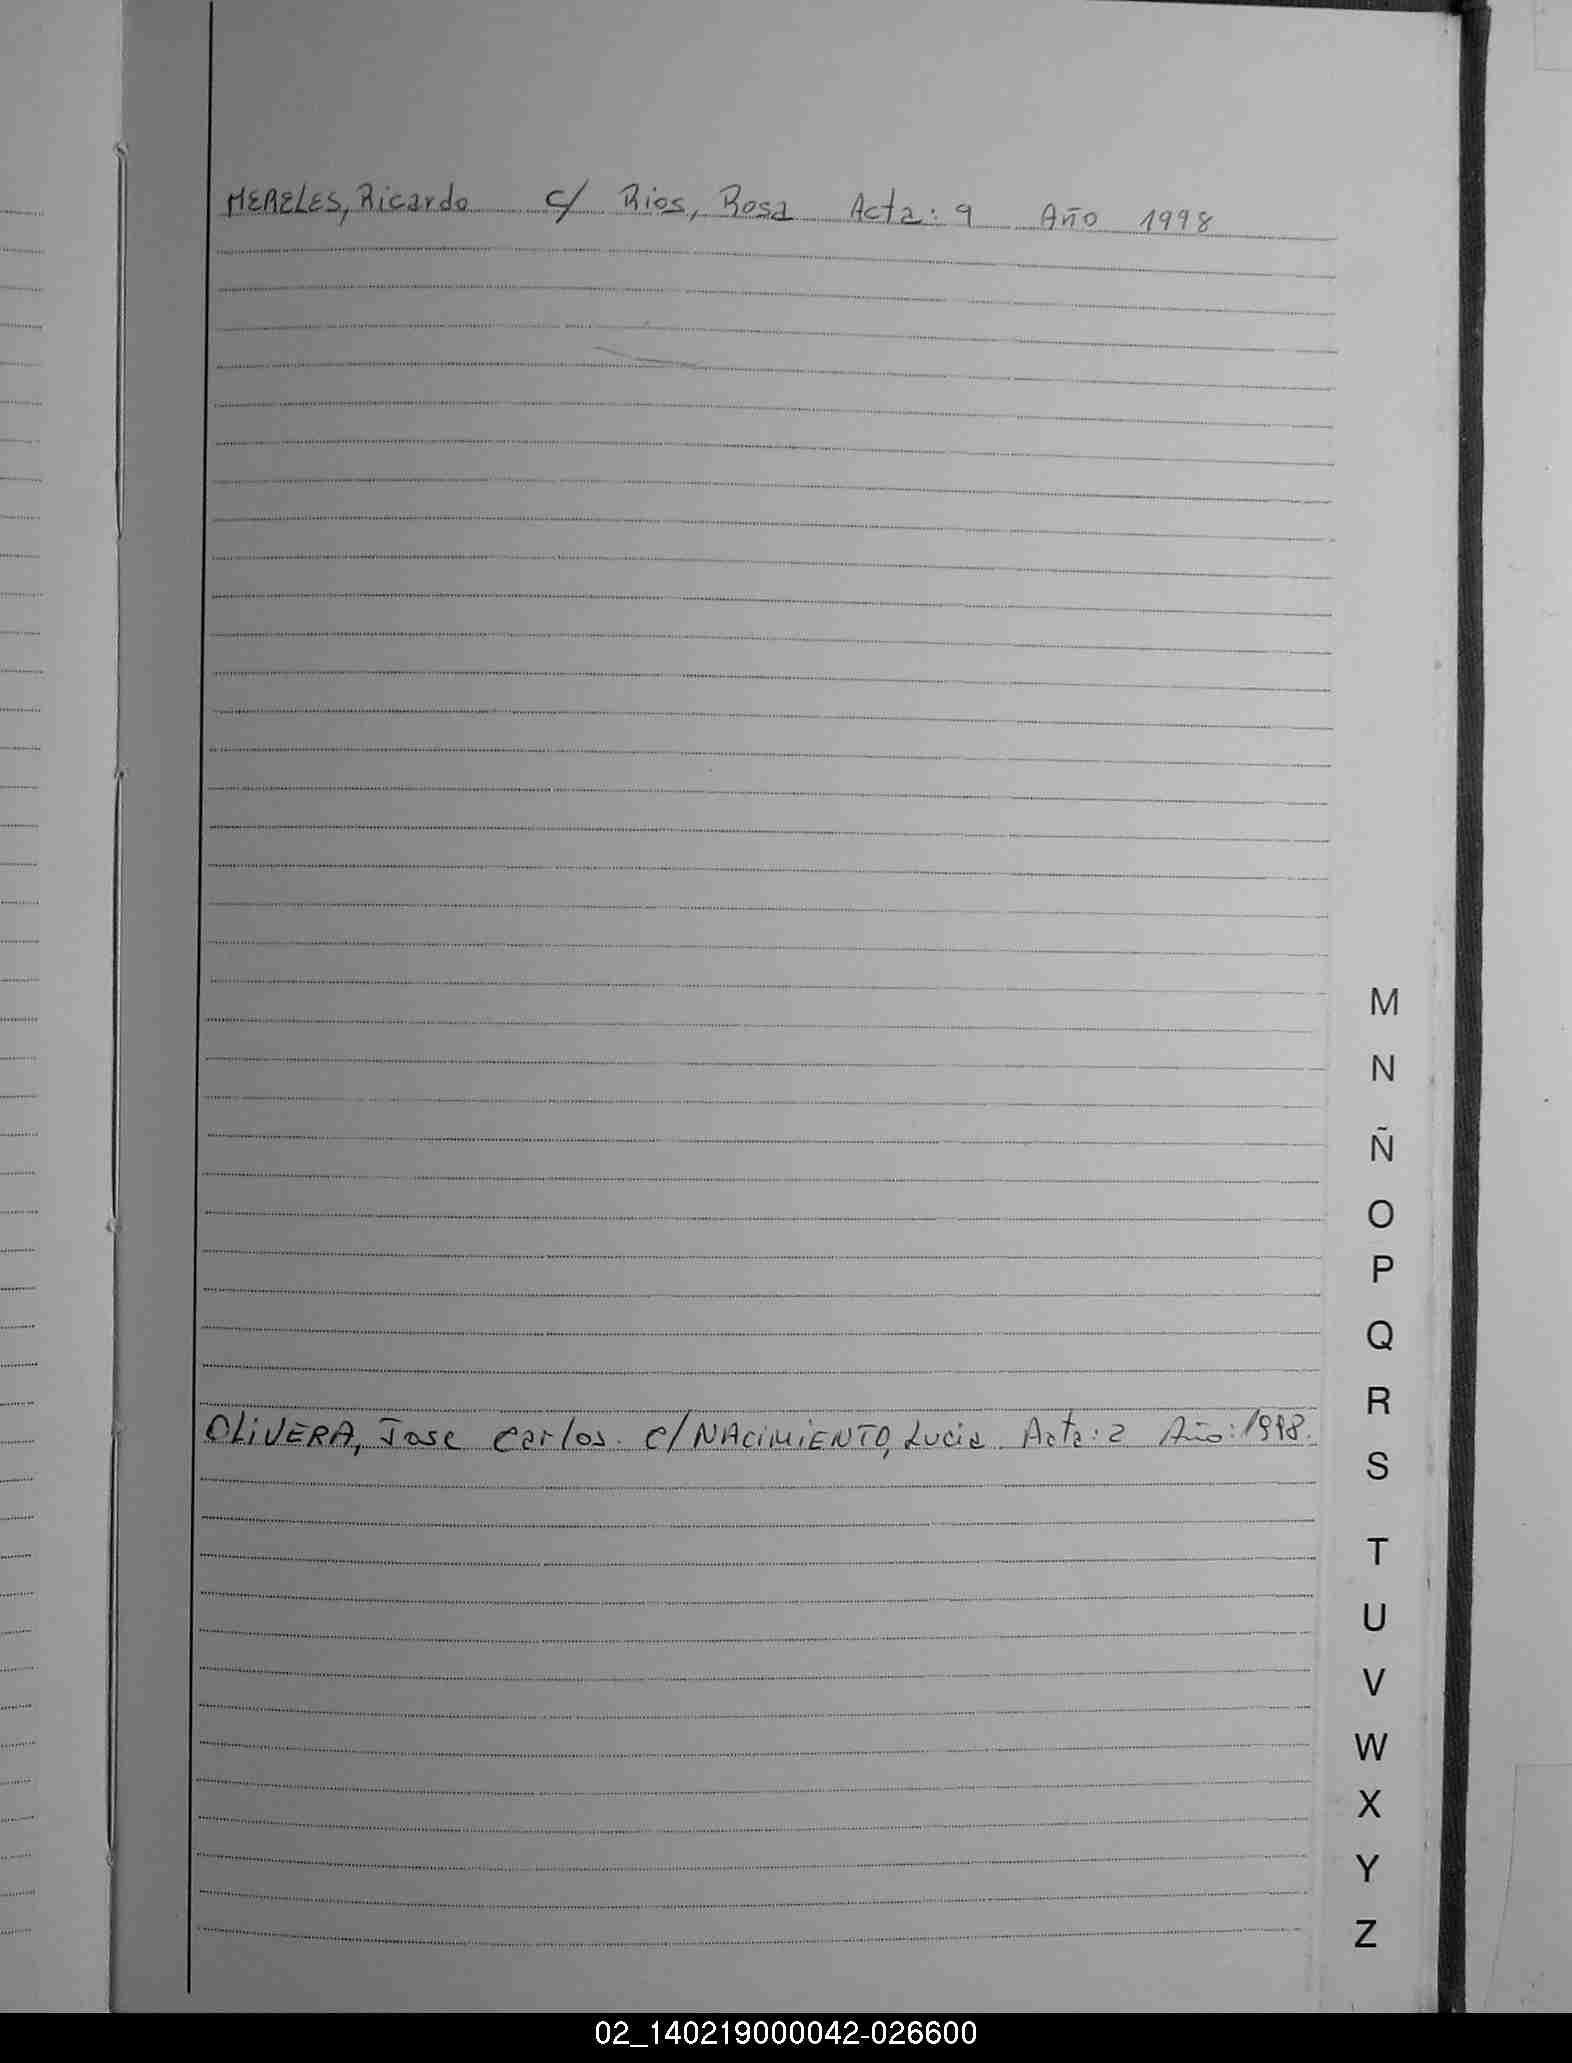 MERELES, Ricardo c/ Rios, Rosa Acta: 9 Año 1998
M
N
Ñ
O
P
Q
R
OLiVERA, Jose Carlos. c/ NAciMiENTO, Lucia Acta: 2 Año: 1998.
S
T
U
V
W
X
Y
Z
02_140219000042-026600